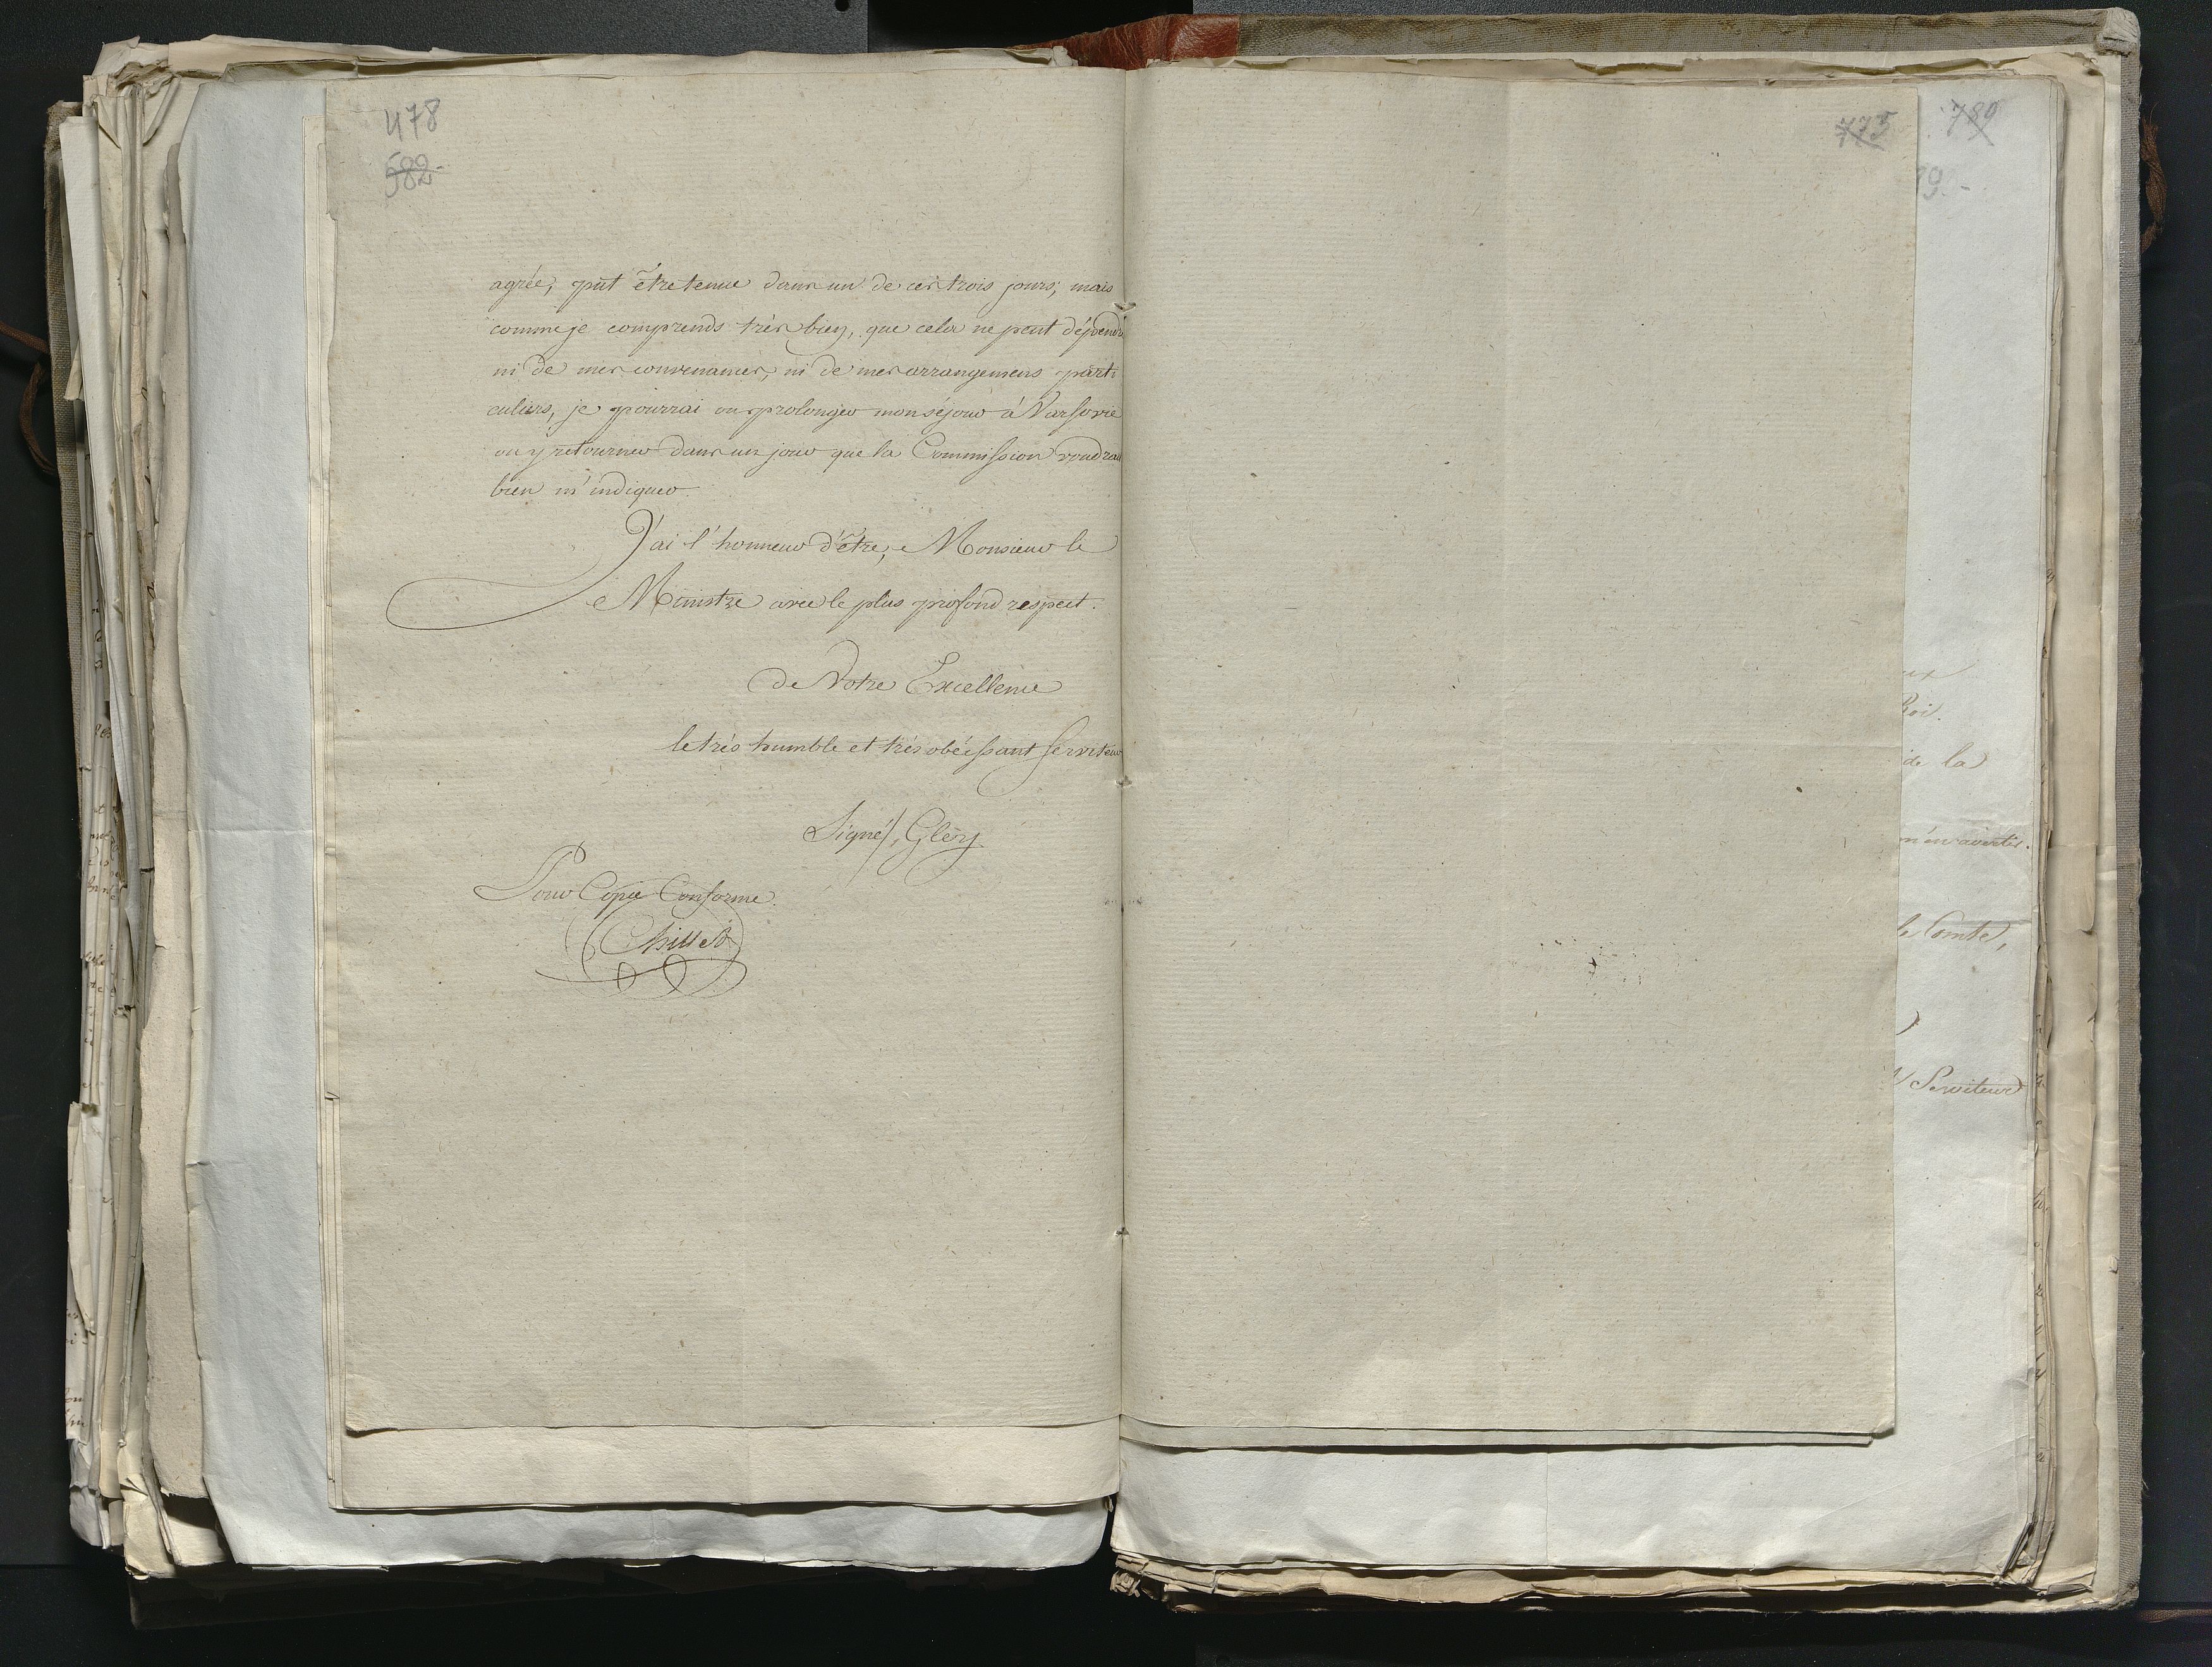 478
582-
agrée, put être tenue dans un de ces trois jours; mais
comme je comprends très bien, que cela ne peut dépendre
ni de mes convenances, ni de mes arrangemens parti
culiers, je pourrai ou prolonger mon séjour à Varsovie
ou y retourner dans un jour que la Commission voudrait
bien m'indiquer.
J'ai l'honneur d'être, Monsieur le
Ministre avec le plus profond respect.
de Votre Excellence
le très humble et très obéissant Serviteur
Signé/, Glery
Pour Copie Conforme.
775
789
9.-
Roi.
de la
le Comte,
Serviteur